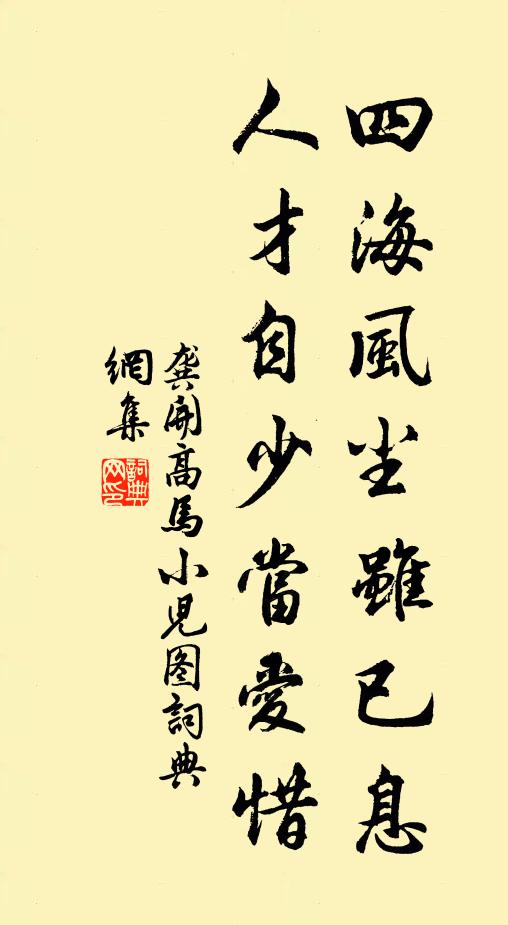 四海風尘雖已息
人才自少當愛惜
龔開高馬小児图詞典
網集
詞典
网印